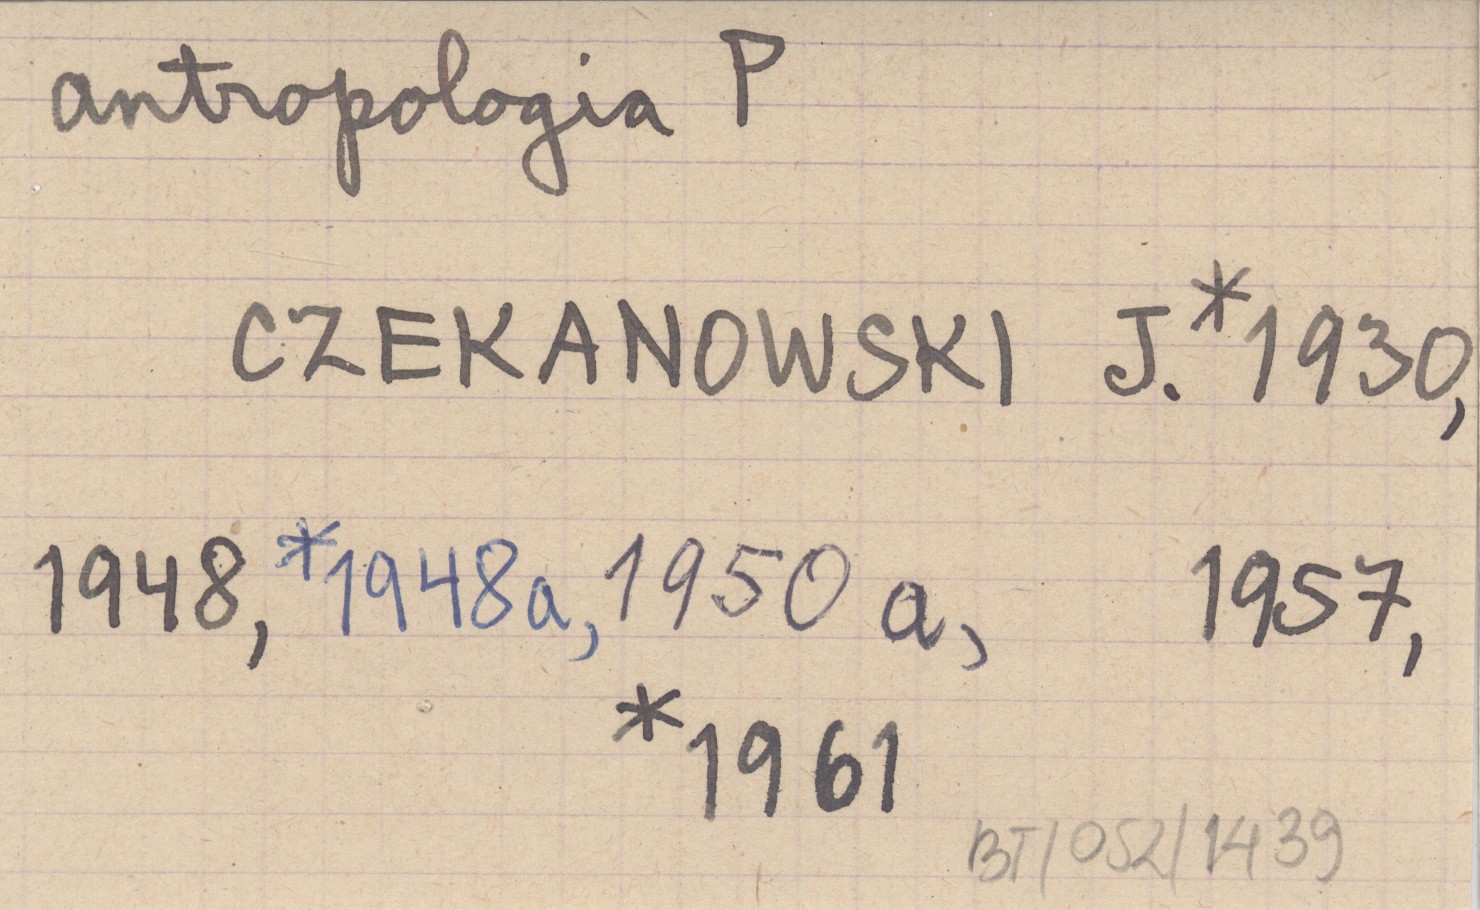 antropologia P
CZEKANOWSKI J. *1930,
1948, *1948a, 1950 a, 1957,
*1961
BT/052/1439